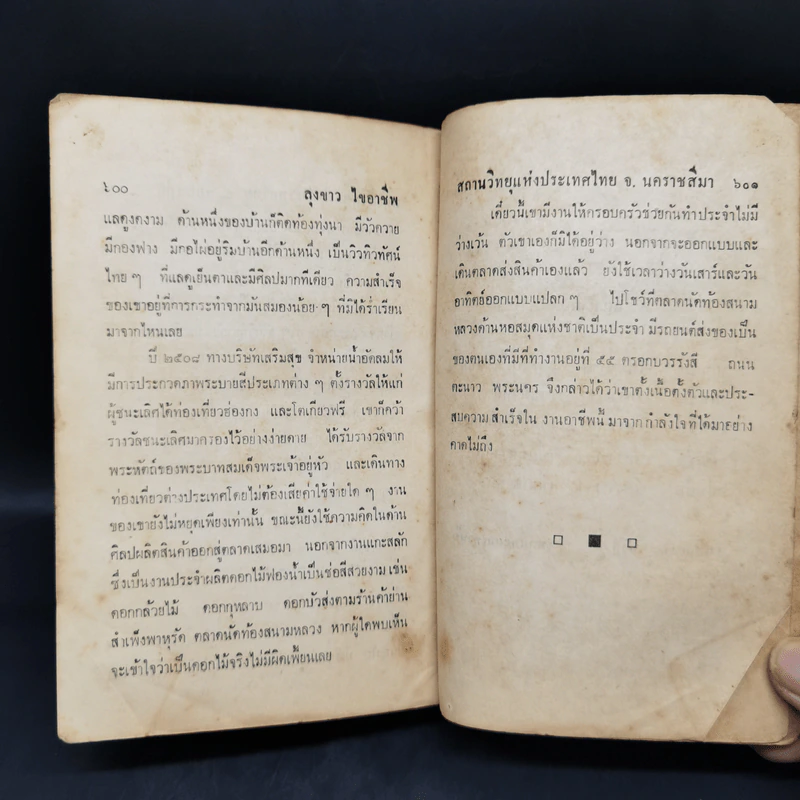 ๖๐๐
ลุงขาว ไขอาชีพ
แลดูงดงาม ด้านหนึ่งของบ้านก็ติดท้องทุ่งนา มีวัวควาย
มีกองฟาง มีกอไผ่อยู่ริมบ้านอีกด้านหนึ่ง เป็นวิวทิวทัศน์
ไทย ๆ ที่แลดูเย็นตาและมีศิลปมากทีเดียว ความสำเร็จ
ของเขาอยู่ที่การกระทำจากมันสมองน้อย ๆ ที่มิได้ร่ำเรียน
มาจากไหนเลย
ปี ๒๕๐๘ ทางบริษัทเสริมสุข จำหน่ายน้ำอัดลมให้
มีการประกวดภาพระบายสีประเภทต่าง ๆ ตั้งรางวัลให้แก่
ผู้ชนะเลิศได้ท่องเที่ยวฮ่องกง และโตเกียวฟรี เขาก็คว้า
รางวัลชนะเลิศมาครองไว้อย่างง่ายดาย ได้รับรางวัลจาก
พระหัตถ์ของพระบาทสมเด็จพระเจ้าอยู่หัว และเดินทาง
ท่องเที่ยวต่างประเทศโดยไม่ต้องเสียค่าใช้จ่ายใด ๆ งาน
ของเขายังไม่หยุดเพียงเท่านั้น ขณะนี้ยังใช้ความคิดในด้าน
ศิลปผลิตสินค้าออกสู่ตลาดเสมอมา นอกจากงานแกะสลัก
ซึ่งเป็นงานประจำผลิตดอกไม้ฟองน้ำเป็นช่อสีสวยงาม เช่น
ดอกกล้วยไม้ ดอกกุหลาบ ดอกบัวส่งตามร้านค้าย่าน
สำเพ็งพาหุรัด ตลาดนัดท้องสนามหลวง หากผู้ใดพบเห็น
จะเข้าใจว่าเป็นดอกไม้จริงไม่มีผิดเพี้ยนเลย
สถานวิทยุแห่งประเทศไทย จ. นครราชสีมา ๖๐๑
เดี๋ยวนี้เขามีงานให้ครอบครัวช่วยกันทำประจำไม่มี
ว่างเว้น ตัวเขาเองก็มิได้อยู่ว่าง นอกจากจะออกแบบและ
เดินตลาดส่งสินค้าเองแล้ว ยังใช้เวลาว่างวันเสาร์และวัน
อาทิตย์ออกแบบแปลก ๆ ไปโชว์ที่ตลาดนัดท้องสนาม
หลวงด้านหอสมุดแห่งชาติเป็นประจำ มีรถยนต์ส่งของเป็น
ของตนเองที่มีที่ทำงานอยู่ที่ ๕๕ ตรอกบวรรังสี ถนน
ตะนาว พระนคร จึงกล่าวได้ว่าเขาตั้งเนื้อตั้งตัวและประ-
สบความสำเร็จใน งานอาชีพนี้ มาจาก กำลังใจ ที่ได้มาอย่าง
คาดไม่ถึง